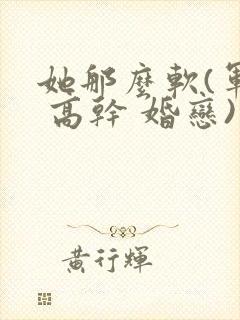 她那麼軟(軍
高幹 婚戀)
黃行輝